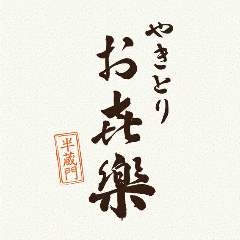 やきとり
お㐂樂
半蔵門